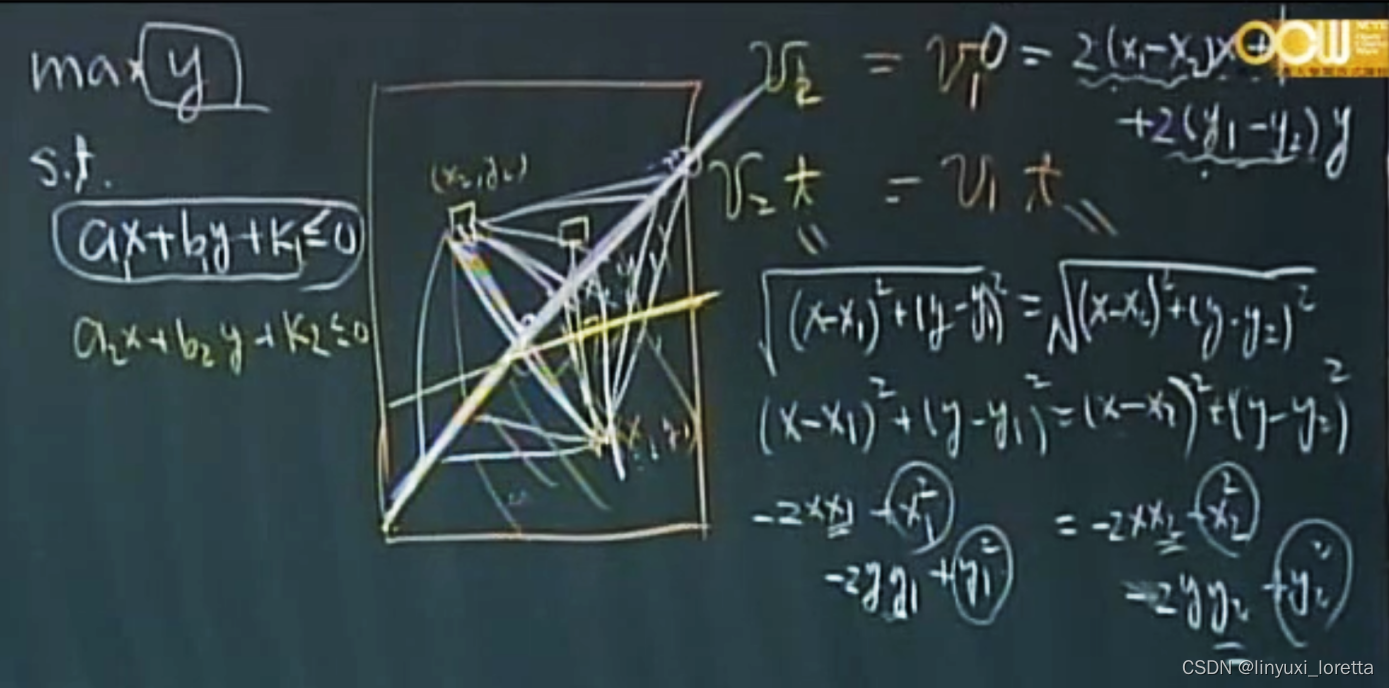 max y
s.t.
a₁x+b₁y+k₁≤0
a₂x+b₂y+k₂≤0
(x₂,y₂)
(x₁,y₁)
v₂ = v₁ 0 = 2(x₁-x₂)x+
+2(y₁-y₂)y
v₂t = v₁t
√((x-x₁)²+(y-y₁)²) = √((x-x₂)²+(y-y₂)²)
(x-x₁)²+(y-y₁)²=(x-x₂)²+(y-y₂)²
-2xx₁+x₁² = -2xx₂+x₂²
-2yy₁+y₁² -2yy₂+y₂²
OCW
CSDN @linyuxi_loretta